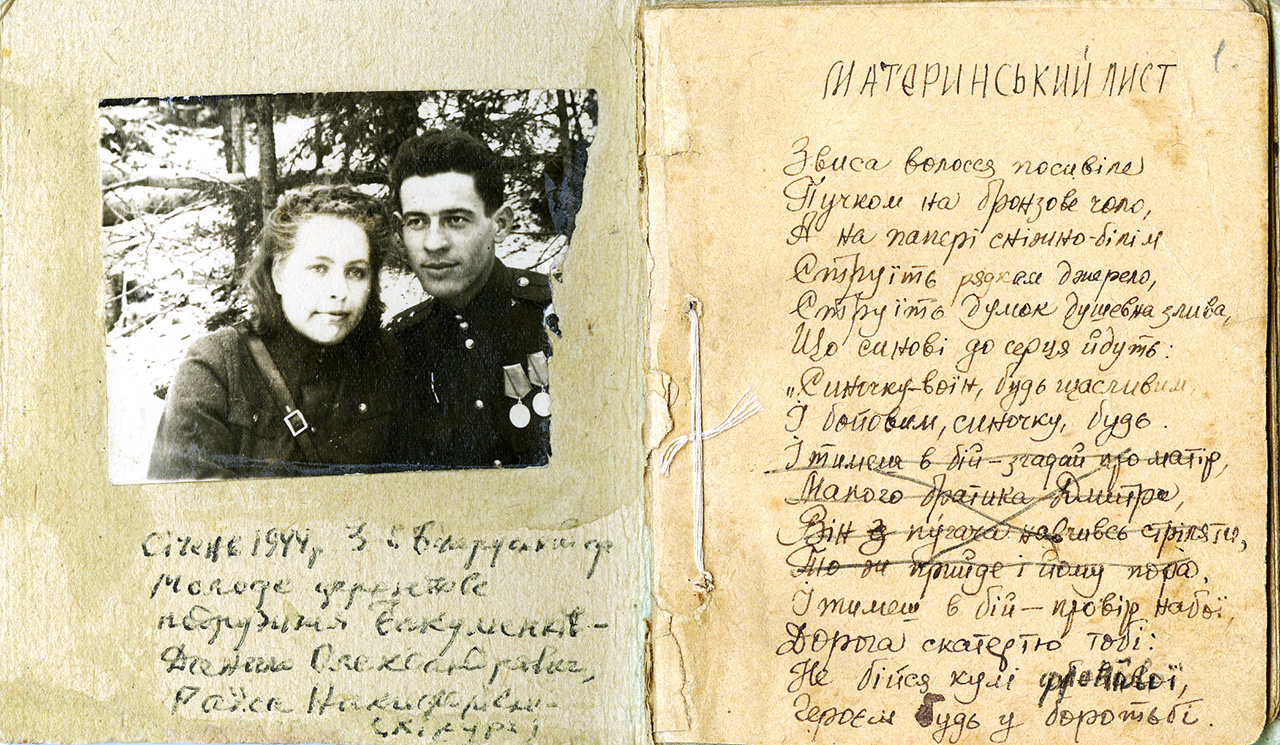 Січень 1944р. 3 й Білоруський фр
Молоде фронтове
подружжя Бакуменків –
Данило Олександрович,
Раїса Никифорівна
1.
МАТЕРИНСЬКИЙ ЛИСТ
Звиса волосся посивіле
Пучком на бронзове чоло,
А на папері сніжно-білім
Струїть рядкам джерело,
Струїть думок душевна злива,
Що синові до серця йдуть:
„Синочку-воїн, будь щасливим
І бойовим, синочку, будь.
Ітимеш в бій – згадай про матір,
Малого братика Дмитра,
Він з пугача навчивсь стріляти,
То ж прийде і йому пора.
Ітимеш в бій – провір набої,
Дорога скатертю тобі:
Не бійся кулі
Героєм будь у боротьбі.